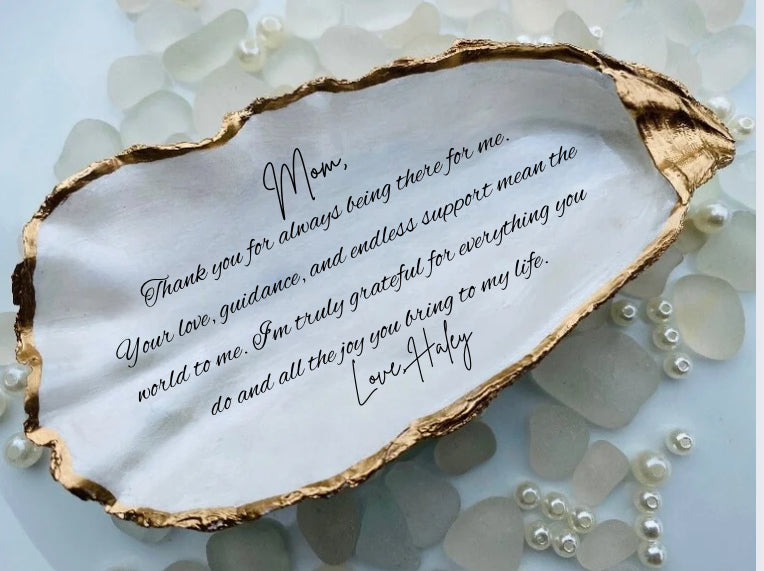 Mom,
Thank you for always being there for me.
Your love, guidance, and endless support mean the
world to me. I'm truly grateful for everything you
do and all the joy you bring to my life.
Love, Haley